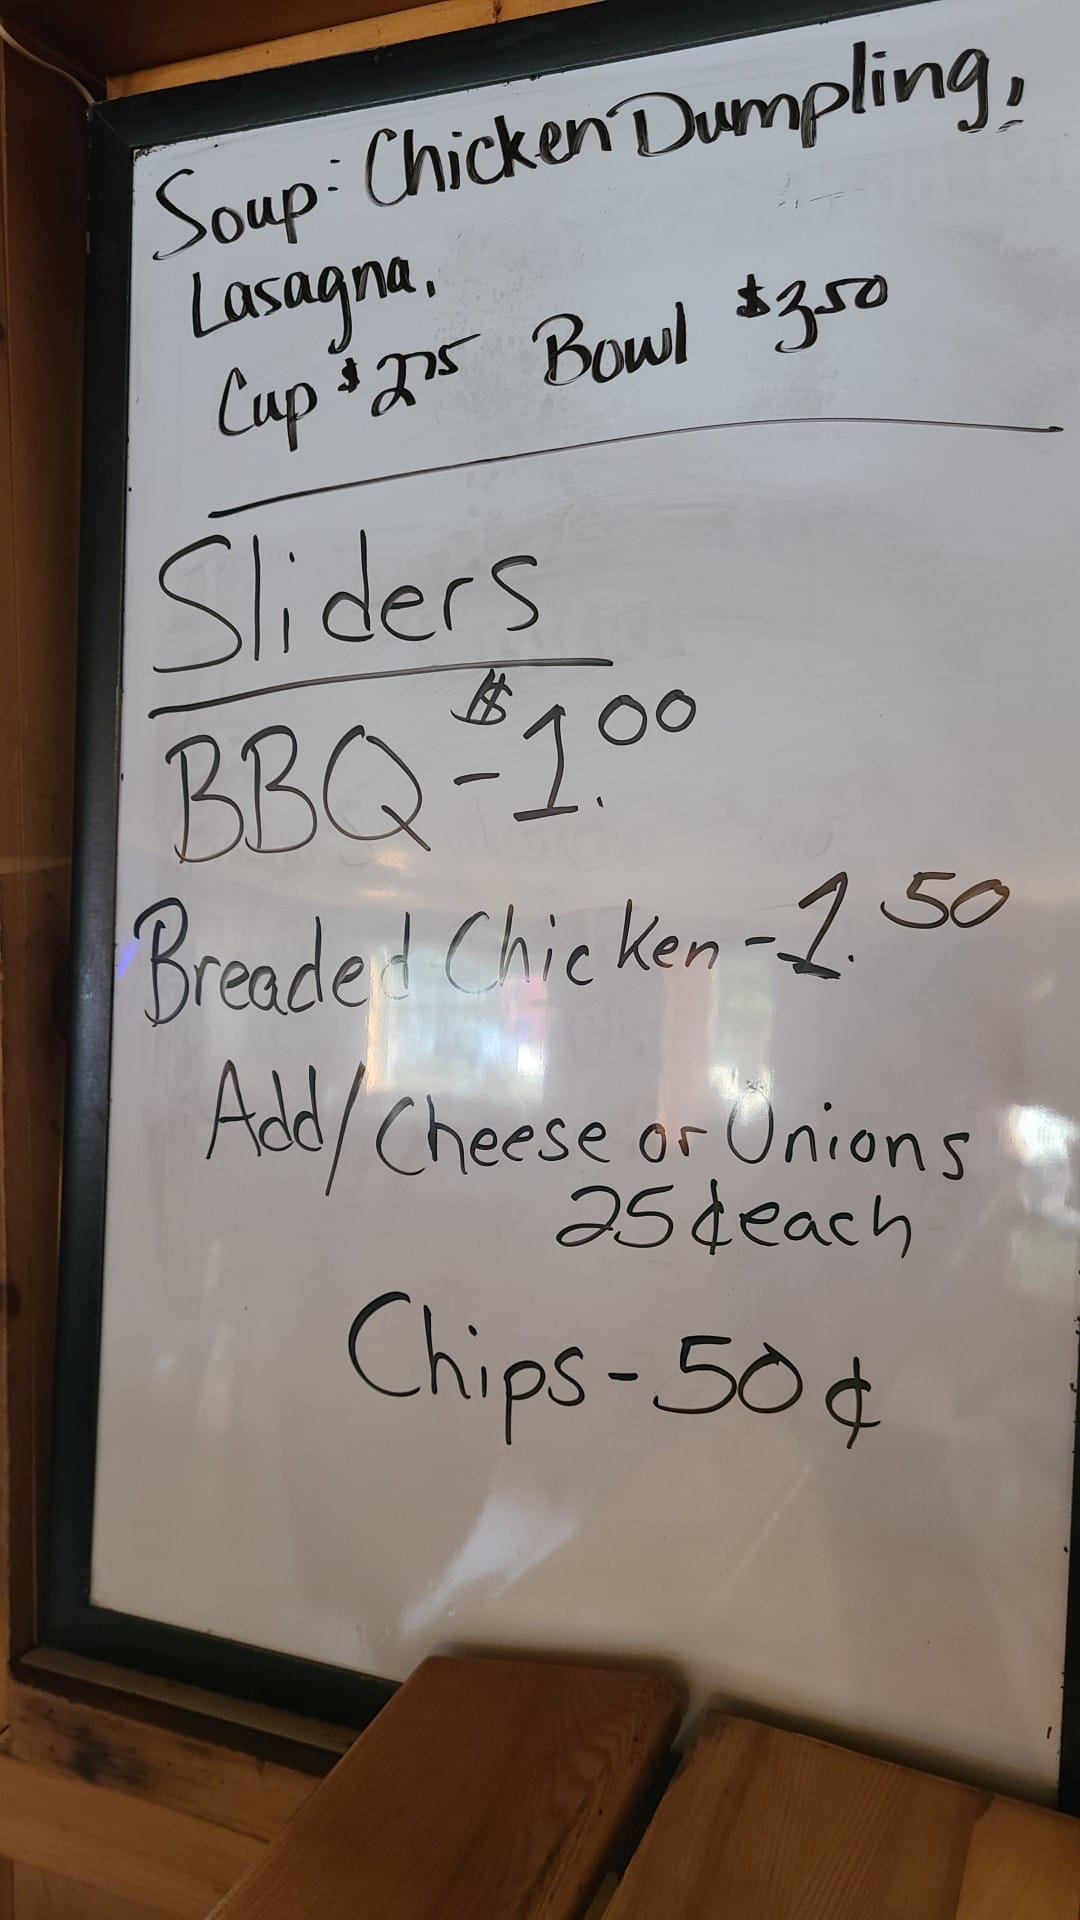 Soup: Chicken Dumpling,
Lasagna,
Cup $2.75 Bowl $3.50
Sliders
BBQ - $1.00
Breaded Chicken - 1.50
Add/Cheese or Onions
25¢ each
Chips - 50¢